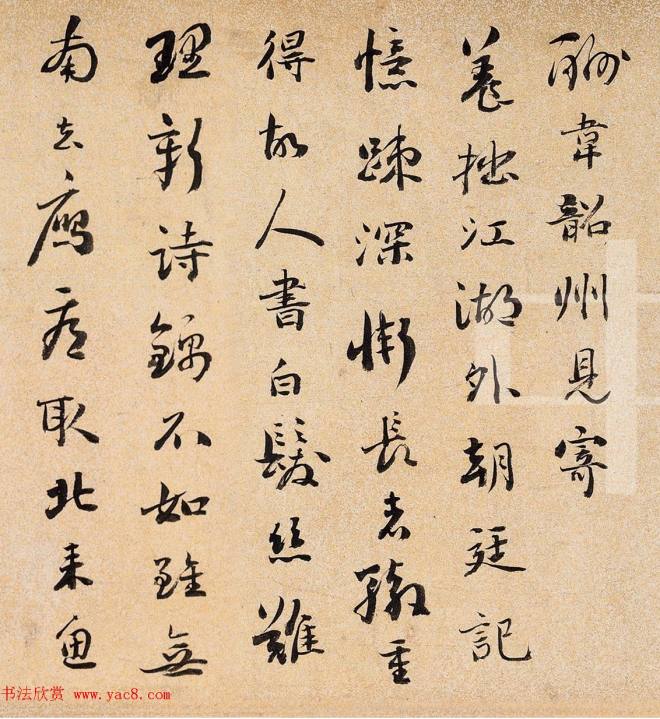 酬韋韶州見寄
養拙江湖外朝廷記
憶踈深慚長者轍重
得故人書白髮絲難
理新詩錦不如雖無
南去鴈看取北來魚
书法欣赏 www.yac8.com